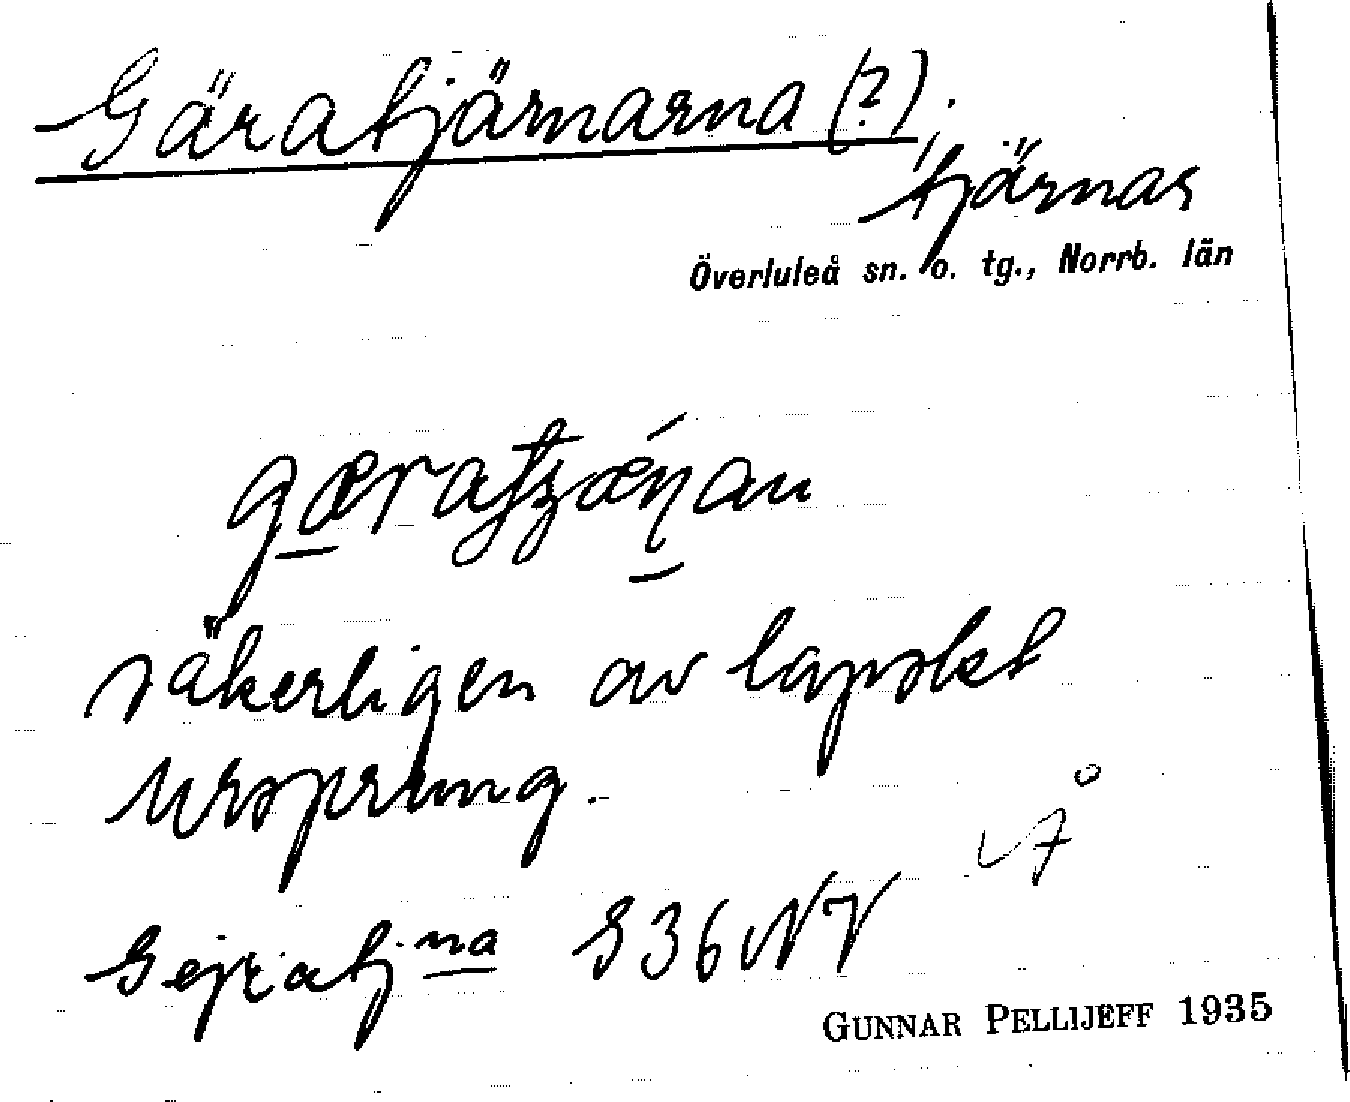 Gäratjärnarna (?).
tjärnar
Överluleå sn. o. tg., Norrb. län
säkerligen av lapskt
ursprung.
Gejratjna 836 NV
GUNNAR PELLIJEFF 1935